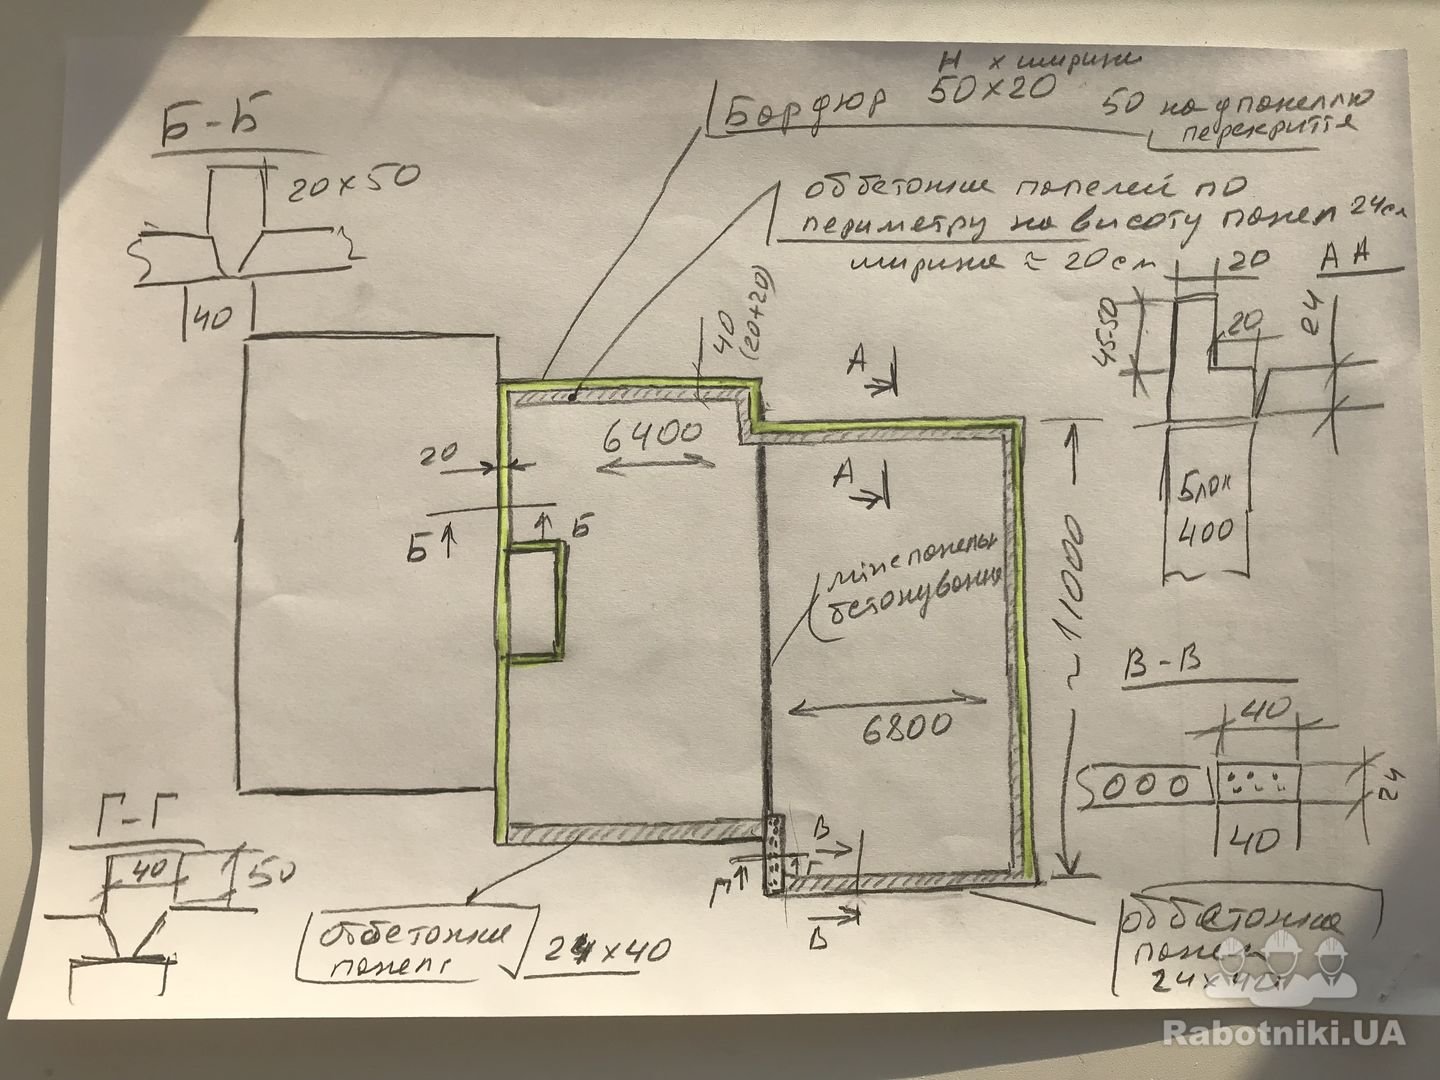 Н х ширини
Бордюр 50х20 50 над панеллю
перекриття
Б-Б
20х50
40
оббетонка панелей по
периметру на висоту панел 24см
ширина ≈ 20см
А А
20
20
45-50
24
Блок
400
40
(20+20)
6400
20
Б
Б
А
А
міжпанельн
бетонування
6800
~11000
В-В
40
24
40
Г-Г
40
50
В
В
Г
Г
оббетонка
панелі
24х40
оббетонка
панелі
24х40
Rabotniki.UA